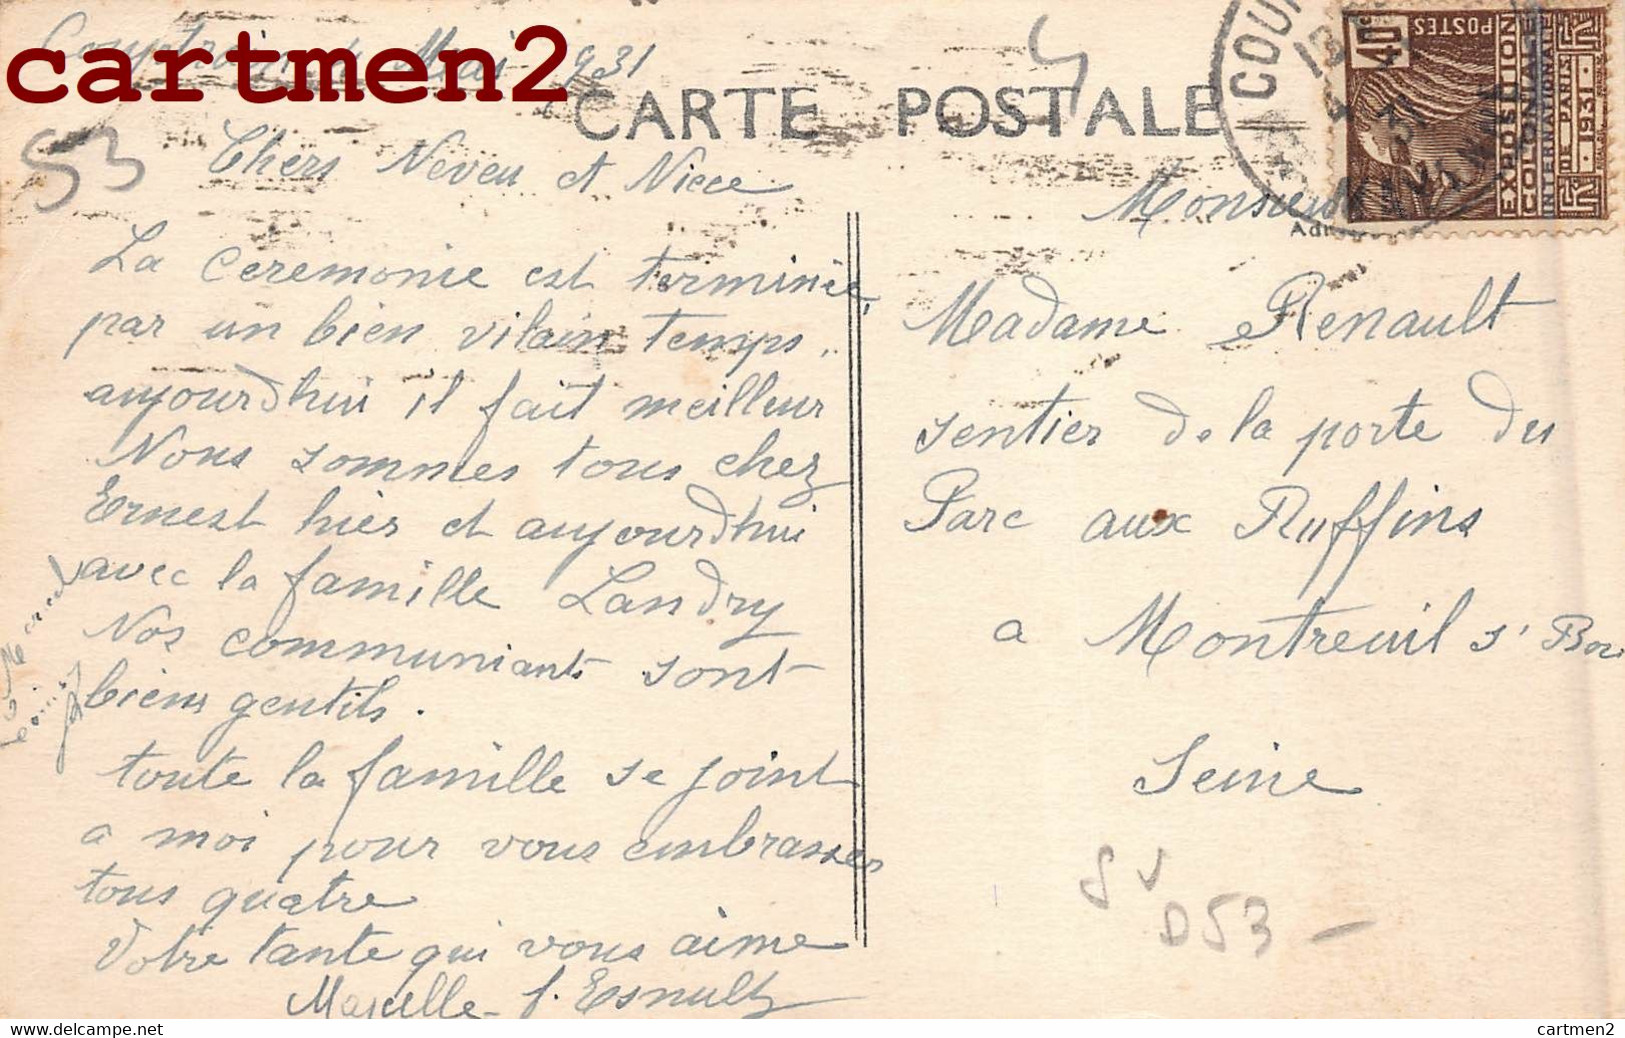 cartmen2
Mai 1931
CARTE POSTALE
53
Chers Neveu et Niece
La ceremonie est terminée,
par un bien vilain temps,
aujourdhui il fait meilleur
Nous sommes tous chez
Ernest hier et aujourdhui
avec la famille Landry
Nos communiants sont
biens gentils.
toute la famille se joint
a moi pour vous embrasser
tous quatre
Votre tante qui vous aime
Marcelle - f. Esnault
Monsieur
Madame Renault
sentier de la porte du
Parc aux Ruffins
a Montreuil s' Bois
Seine
D53 -
COU
31
MAYENNE
40c
POSTES
EXPOSITION
COLONIALE
INTERNATIONALE
DE PARIS
1931
delcampe.net
cartmen2